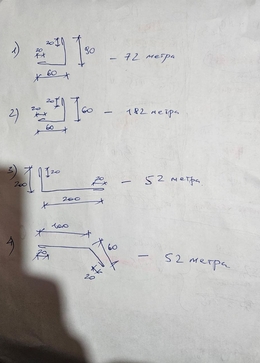 1) 20 20 90 60 - 72 метра
2) 20 20 60 60 - 182 метра
3) 200 20 20 200 - 52 метра
4) 100 20 60 20 - 52 метра